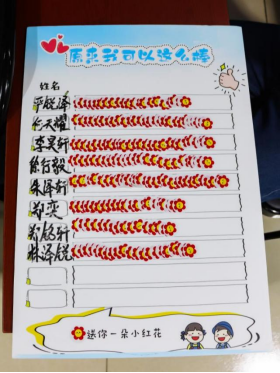 原来我可以这么棒
姓名
严晓泽
任天耀
李昊轩
徐行毅
朱泽轩
郑奕
郑铭轩
林泽锐
送你一朵小红花